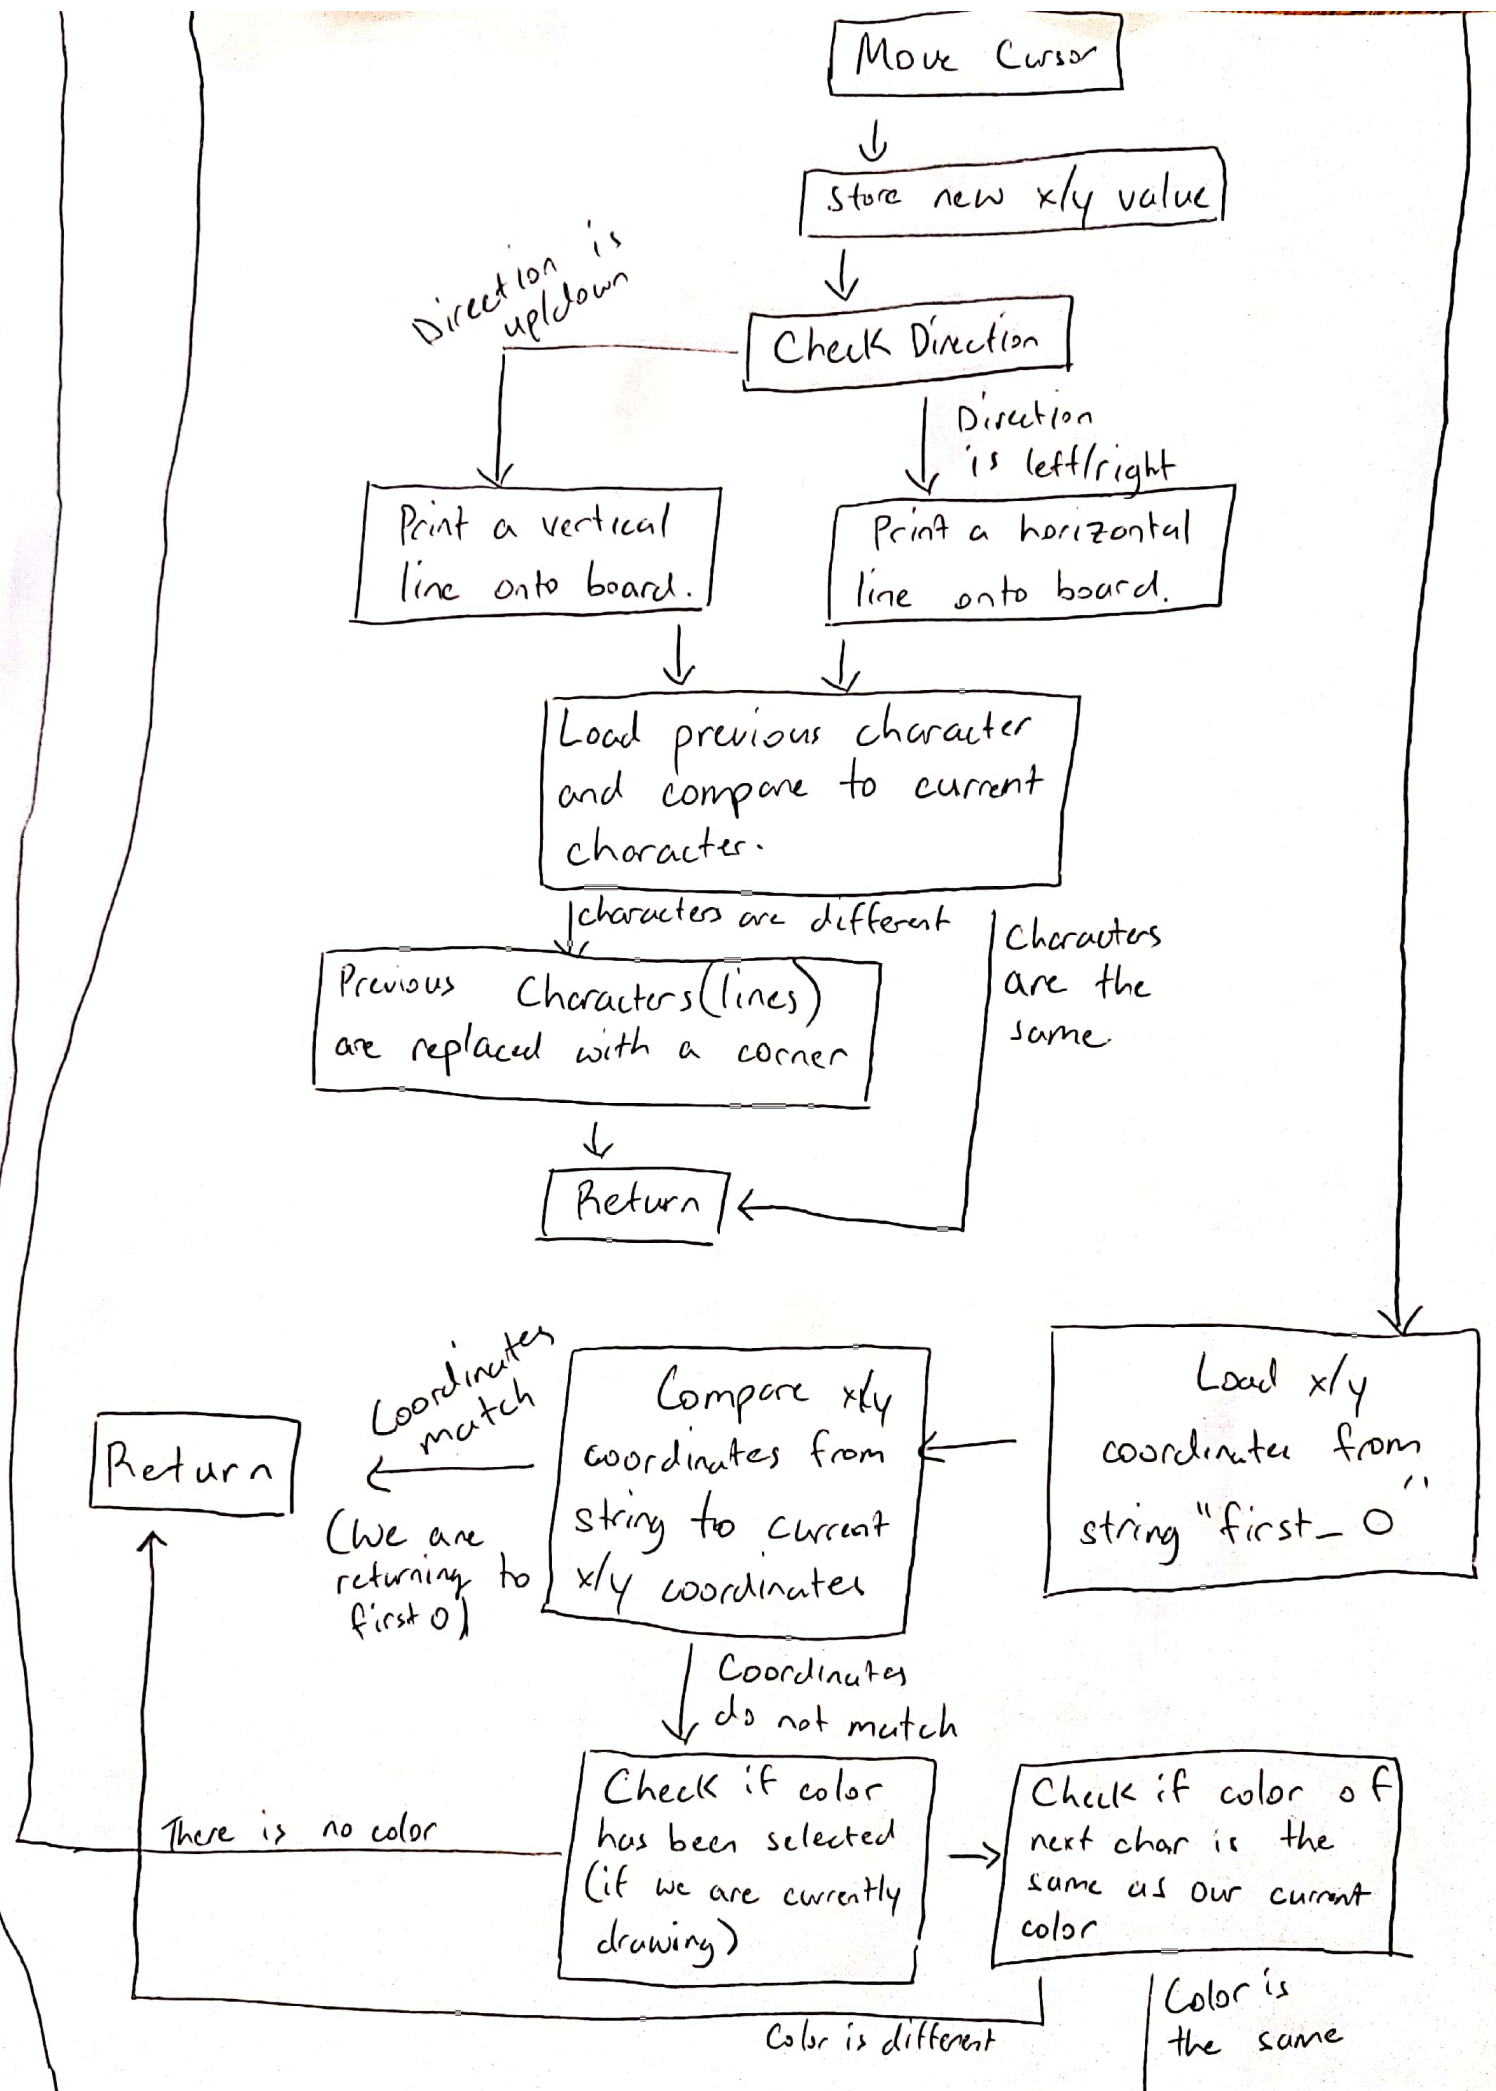 Move Cursor
store new x/y value
Direction is
up/down
Check Direction
Direction
is left/right
Print a vertical
line onto board.
Print a horizontal
line onto board.
Load previous character
and compare to current
character.
characters are different
Characters
are the
same.
Previous Characters(lines)
are replaced with a corner
Return
Load x/y
coordinates from
string "first_0"
Compare x/y
coordinates from
string to current
x/y coordinates
Coordinates
match
(We are
returning to
first 0)
Return
Coordinates
do not match
Check if color
has been selected
(if we are currently
drawing)
There is no color
Check if color of
next char is the
same as our current
color
Color is different
Color is
the same